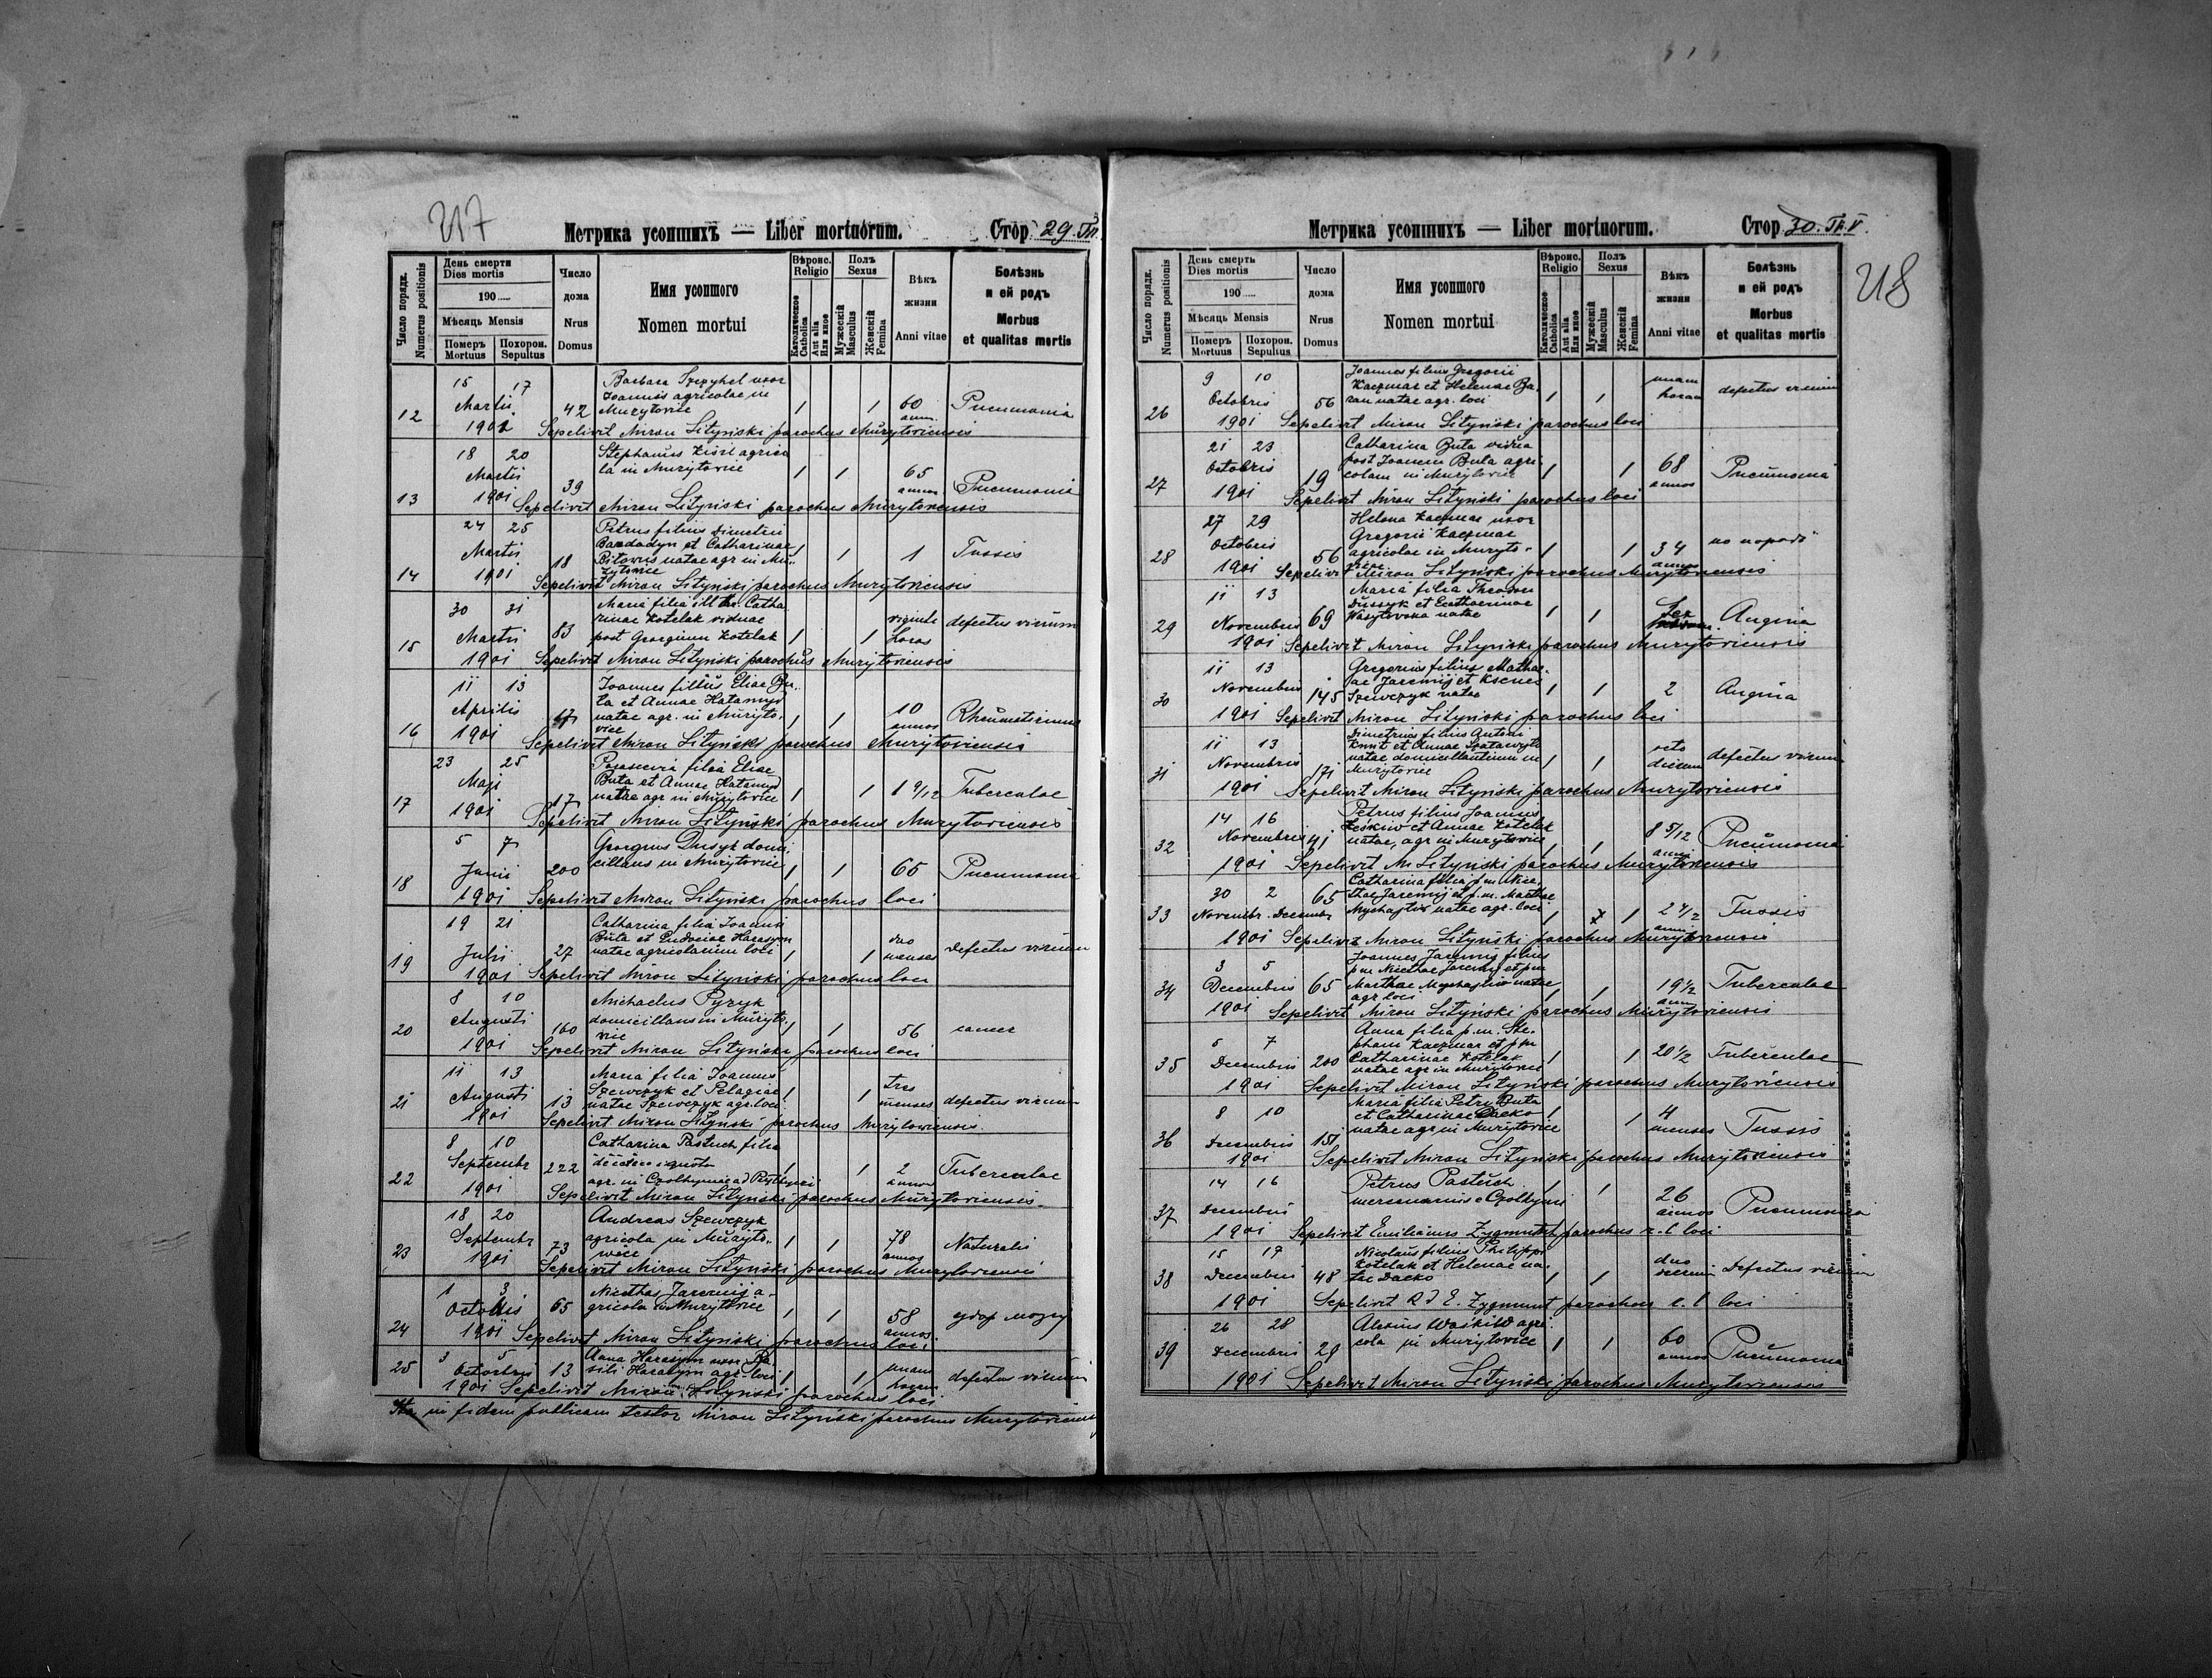 217
Метрика усопшихъ — Liber mortuorum.
Стор. 29. Tп.
Число порядк. Numerus positionis
День смерти
Dies mortis
190.....
Мѣсяць Mensis
Померъ Mortuus
Похорон. Sepultus
Число дома Nrus Domus
Имя усопшого
Nomen mortui
Вѣроис. Religio
Католическое Catholica
Или иное Aut alia
Полъ Sexus
Мужескій Masculus
Женскій Femina
Вѣкъ жизни Anni vitae
Болѣзнь и ей родъ
Morbus et qualitas mortis
15 17 Barbara Szczyhel uxor
Martii Joannis agricolae in
12 42 Murzytovice 1 1 60 Pneumonia
1901 Sepelivit Miron Lityński parochus Muryloviensis
18 20 Stephanus Kisil agrico
Martii la in Murzytovice 1 1 65
13 39 annos Pneumonia
1901 Sepelivit Miron Lityński parochus Murzytoviensis
24 25 Petrus filius Dimetrii
Martii Bardadyn et Catharinae 1 1 1 Tussis
14 18 natae agr in Mu-
zytovice
1901 Sepelivit Miron Lityński parochus Murzytoviensis
30 31 Maria filia ill. Catha
rinae Kotelak viduae viginti defectus virium
15 Martii 83 post Georgium Kotelak 1 1 horas
1901 Sepelivit Miron Lityński parochus Murzytoviensis
11 13 Joannes filius Eliae Bu-
Aprilis ta et Annae Hatamyd 10
16 17 natae agr. in Murzyto- 1 1 annos
vice
1901 Sepelivit Miron Lityński parochus Murzytoviensis
23 25 filia Eliae
Maji Buta et Annae Hatamyd
17 17 natae agr in Murzytovice 1 1 1 9/12 Tuberculae
1901 Sepelivit Miron Lityński parochus Murzytoviensis
5 7 Georgius Dusyk domi
Junii 200 cillans in Murzytovice 1 1 65 Pneumonia
18 1901 Sepelivit Miron Lityński parochus loci
19 21 Catharina filia Joannis
Buta et Eudociae Harasym duo
19 Julii 27 natae agricolarum loci 1 1 menses defectus virium
1901 Sepelivit Miron Lityński parochus loci
8 10 Michaelus Pyzyk
Augusti domicillans in Murzyto-
20 160 vice 1 1 56 cancer
1901 Sepelivit Miron Lityński parochus loci
11 13 Maria filia Joannis
Augusti Szewczyk et Pelagiae 1 1 tres
21 13 natae Szewczyk agr. loci menses defectus virium
1901 Sepelivit Miron Lityński parochus Murzytoviensis
8 10 Catharina Pastuch filia
Septembr 222 1 1 2 Tuberculae
22 agr. in annos
1901 Sepelivit Miron Lityński parochus Murzytoviensis
18 20 Andreas Szewczyk
Septembr 73 agricola in Murzyto- 1 1 78 Naturalis
23 wice annos
1901 Sepelivit Miron Lityński parochus Murzytoviensis
1 3 Nicethas Jaremij a-
Octobris 65 gricola in Murzytovice 1 1 58 удар мозгу
24 annos
1901 Sepelivit Miron Lityński parochus loci
3 5 Anna Harasym uxor Ba-
25 Octobris 13 sili Harasym agr. loci 1 1 unam defectus virium
horam
1901 Sepelivit Miron Lityński parochus loci
Ita in fidem publicam testor Miron Lityński parochus Murzytoviensis
Метрика усопшихъ — Liber mortuorum.
Стор. 30. Tп. V.
218
Число порядк. Numerus positionis
День смерть
Dies mortis
190.....
Мѣсяць Mensis
Померъ Mortuus
Похорон. Sepultus
Число дома Nrus Domus
Имя усопшого
Nomen mortui
Вѣроис. Religio
Католическое Catholica
Или иное Aut alia
Полъ Sexus
Мужескій Masculus
Женскій Femina
Вѣкъ жизни Anni vitae
Болѣзнь и ей родъ
Morbus et qualitas mortis
9 10 Joannes filius Gregorii
Octobris Kaczmar et Helenae Ba- unam defectus virium
26 56 ran natae agr. loci 1 1 horam
1901 Sepelivit Miron Lityński parochus loci
21 23 Catharina Buta vidua
Octobris post Joannem Buta agri 68
27 19 colam in Murzytovice 1 1 annos Pneumonia
1901 Sepelivit Miron Lityński parochus loci
27 29 Helena Kaczmar uxor
Octobris Gregorii Kaczmar
28 56 agricolae in Murzyto- 1 1 34 по породі
1901 Sepelivit Miron Lityński parochus Murzytoviensis
11 13 Maria filia Theodori
Dussyk et Catharinae
29 Novembris 69 natae 1 1 Angina
1901 Sepelivit Miron Lityński parochus Murzytoviensis
11 13 Gregorius filius Mathae-
Novembris ae Jaremij et Kseniae
30 145 Szewczyk natae 1 1 2 Angina
1901 Sepelivit Miron Lityński parochus loci
11 13 Dimetrius filius Antoni
Novembris et Annae octo
31 171 natae domicillantium in 1 1 dierum defectus virium
Murzytovice
1901 Sepelivit Miron Lityński parochus Murzytoviensis
14 16 Petrus filius Joannis
Novembris et Annae Kotelak
32 41 natae, agr in Murzytovice 1 1 8 5/12 Pneumonia
1901 Sepelivit M Lityński parochus Murzytoviensis
30 2 Catharina filia p.m. Nice-
33 Novembr. Decembr 65 thae Jaremij et p.m. Marthae
Mychajliw natae agr. loci 1 1 2 4/12 Tussis
1901 Sepelivit Miron Lityński parochus Murzytoviensis
3 5 Joannes Jaremij filius
p.m. Nicethae Jaremij et p.m
34 Decembris 65 Marthae Mychajliw natae 1 1 19 1/2 Tuberculae
agr loci
1901 Sepelivit Miron Lityński parochus Murzytoviensis
5 7 Anna filia p.m. Ste-
phani Kaczmar et p.m
35 Decembris 200 Catharinae Kotelak 1 1 20 1/2 Tuberculae
natae agr in Murzytovice
1901 Sepelivit Miron Lityński parochus Murzytoviensis
8 10 Maria filia Petri Buta
et Catharinae Dacko 1 1 4
36 Decembris 151 natae agr in Murzytovice menses Tussis
1901 Sepelivit Miron Lityński parochus Murzytoviensis
14 16 Petrus Pastuch 1 1 26
37 Decembris annos Pneumonia
1901 Sepelivit Emilianus Zygmunt parochus r. l loci
15 17 Nicolaus filius Philippi
Kotelak et Helenae na- duo
38 Decembris 48 tae Dacko 1 1 dierum Defectus virium
1901 Sepelivit R D E. Zygmunt parochus r. l loci
26 28 Alexius Waskiw agri-
39 Decembris 29 cola in Murzytovice 1 1 60 annos Pneumonia
1901 Sepelivit Miron Lityński parochus Murzytoviensis